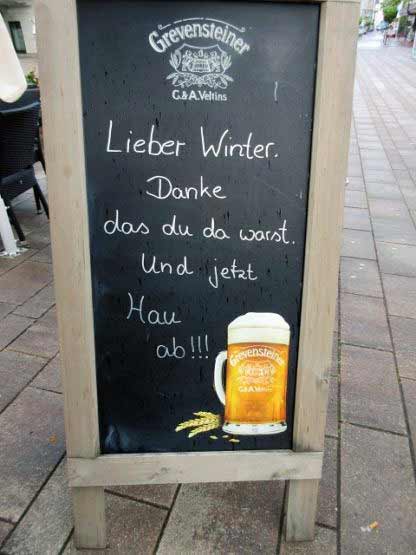 Grevensteiner
C.&A. Veltins
Lieber Winter.
Danke
das du da warst.
Und jetzt
Hau
ab!!!
Grevensteiner
C.&A. Veltins